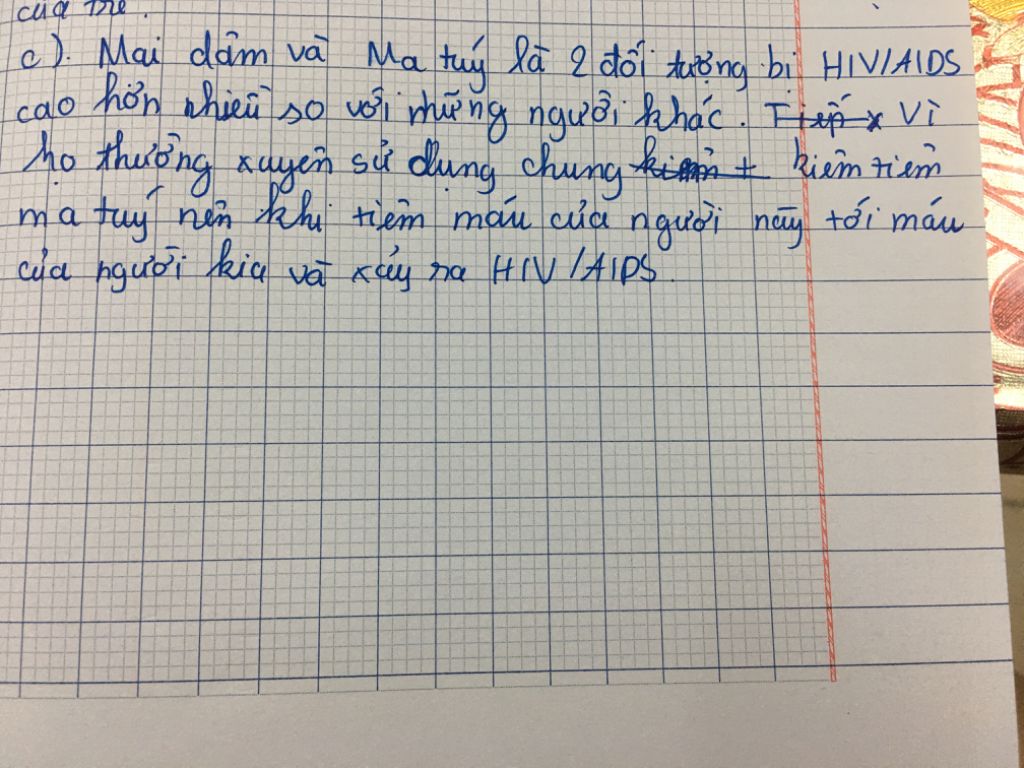 của mẹ.
c). Mại dâm và Ma tuý là 2 đối tượng bị HIV/AIDS
cao hơn nhiều so với những người khác. Tiếp x Vì
họ thường xuyên sử dụng chung kiêm t kiêm tiêm
ma tuý nên khi tiêm máu của người này tới máu
của người kia và xảy ra HIV/AIDS.